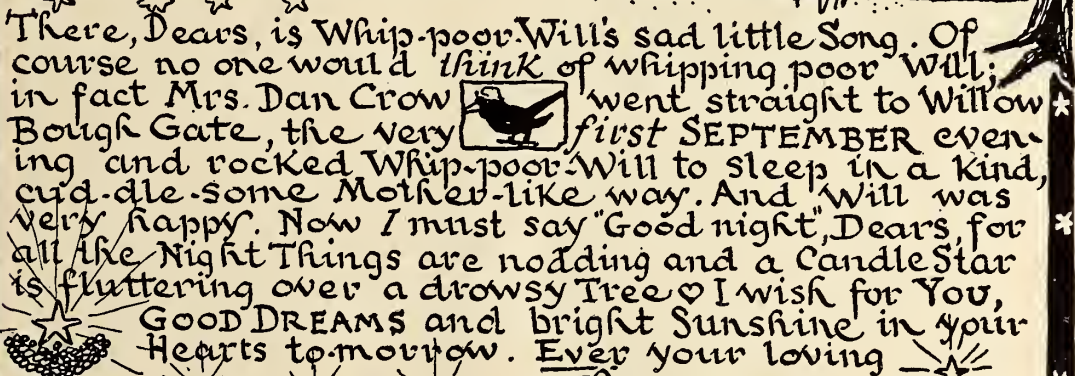 There, Dears, is Whip-poor-Will's sad little Song. Of
course no one would think of whipping poor Will;
in fact Mrs. Dan Crow went straight to Willow
Bough Gate, the very first SEPTEMBER even-
ing and rocked Whip-poor-Will to sleep in a kind,
cud-dle-some Mother-like way. And Will was
very happy. Now I must say "Good night", Dears, for
all the Night Things are nodding and a Candle Star
is fluttering over a drowsy Tree ♡ I wish for You,
GOOD DREAMS and bright Sunshine in your
Hearts to-morrow. Ever your loving